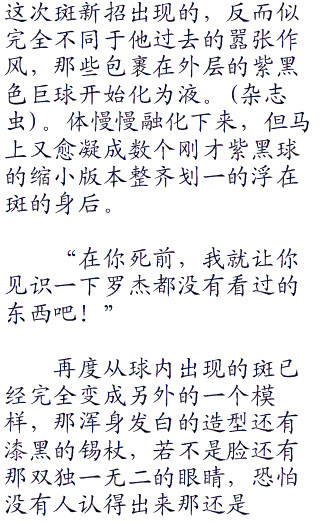 这次斑新招出现的，反而似
完全不同于他过去的嚣张作
风，那些包裹在外层的紫黑
色巨球开始化为液。(杂志
虫)。体慢慢融化下来，但马
上又愈凝成数个刚才紫黑球
的缩小版本整齐划一的浮在
斑的身后。
“在你死前，我就让你
见识一下罗杰都没有看过的
东西吧！”
再度从球内出现的斑已
经完全变成另外的一个模
样，那浑身发白的造型还有
漆黑的锡杖，若不是脸还有
那双独一无二的眼睛，恐怕
没有人认得出来那还是